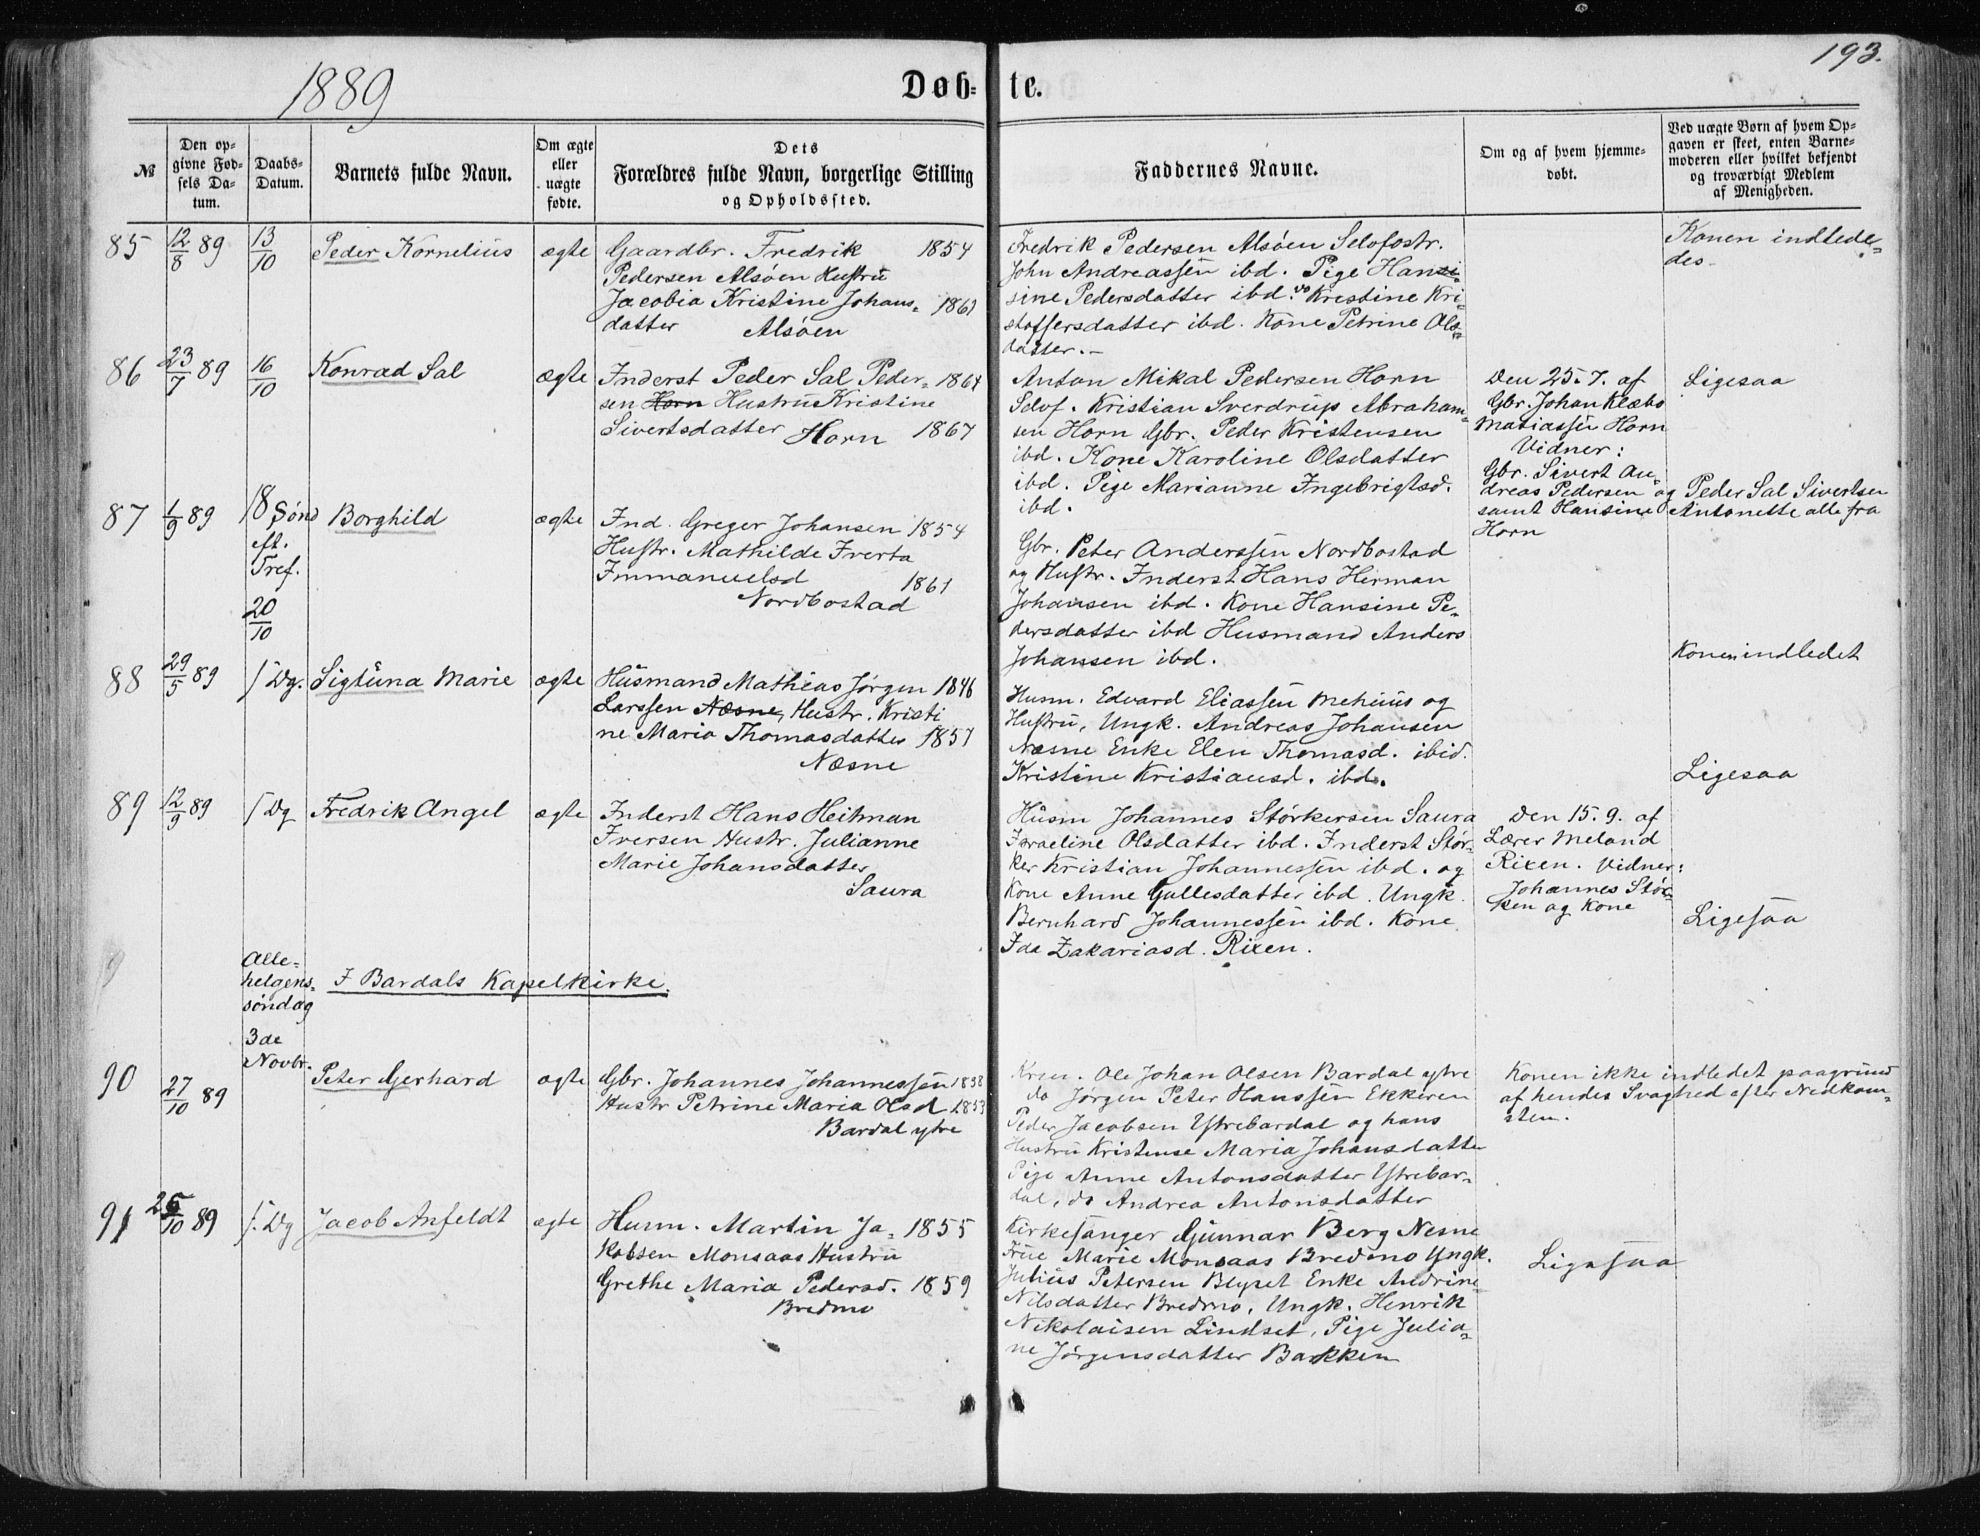 193.
1889
Døb-
te.
№
Den op-
givne Fød-
sels Da-
tum.
Daabs-
Datum.
Barnets fulde Navn.
Om ægte
eller
uægte
fødte.
Dets
Forældres fulde Navn, borgerlige Stilling
og Opholdssted.
Faddernes Navne.
Om og af hvem hjemme-
døbt.
Ved uægte Børn af hvem Op-
gaven er skeet, enten Barne-
moderen eller hvilket bekjendt
og troværdigt Medlem
af Menigheden.
85
12/8 89
13/10
Peder Kornelius
ægte
Gaardbr. Fredrik 1854
Pedersen Alsøen Hustru
Jacobia Kristine Johans- 1861
datter Alsøen
Fredrik Pedersen Alsøen Selofostr.
John Andreassen ibd. Pige Han
sine Pedersdatter ibd. do Kristine Kri-
stoffersdatter ibd. Kone Petrine Ols-
datter.-
Konen indlede-
des.
86
23/7 89
16/10
Konrad Sal
ægte
Inderst Peder Sal Peder- 1864
sen Horn Hustru Kristine
Sivertsdatter Horn 1867
Anton Mikal Pedersen Horn
Selof. Kristian Sverdrup Abraham-
sen Horn Gbr. Peder Kristensen
ibd. Kone Karoline Olsdatter
ibd. Pige Marianne Ingebrigtsd.
ibd.
Den 25.7. af
Gbr. Johan Klæbo
Matiassen Horn
Vidner:
Gbr. Sivert An-
dreas Pedersen og Peder Sal Sivertsen
samt Hansine Antonette alle fra
Horn
Ligesaa
87
1/9 89
18 Sønd
eft.
Tref.
20/10
Borghild
ægte
Ind. Greger Johansen 1854
Hustr. Mathilde Iverta
Immanuelsd 1861
Nordbostad
Gbr. Peter Anderssen Nordbostad
og Hustr. Inderst Hans Herman
Johansen ibd. Kone Hansine Pe-
dersdatter ibd Husmand Anders
Johansen ibd.
88
29/5 89
S. Dg.
Sigtuna Marie
ægte
Husmand Mathias Jørgen 1846
Larssen Næsne, Hustr. Kristi
ne Maria Thomasdatter 1857
Næsne
Husm. Edvard Eliassen Mehuus og
Hustru, Ungk. Andreas Johansen
Næsne Enke Elen Thomasd. ibid.
Kristine Kristiansd. ibd.
Konen indledet
89
12/9 89
S. Dg
Fredrik Angel
ægte
Inderst Hans Heitman
Iversen Hustr. Julianne
Marie Johansdatter
Saura
Husm Johannes Størkersen Saura
Israeline Olsdatter ibd. Inderst Stør-
ker Kristian Johannessen ibd. og
Kone Anne Gullesdatter ibd. Ungk.
Bernhard Johannessen ibd. Kone
Ida Zakariasd. Rixen.
Den 15.9. af
Lærer Meland
Rixen. Vidner:
Johannes Stør-
ken og Kone
Ligesaa
Ligesaa
9
Alle-
helgens-
søndag
3de
Novbr.
I Bardals Kapelkirke.
90
27/10 89
Peter Gerhard
ægte
Gbr. Johannes Johannessen 1838
Hustr Petrine Maria Olsd 1853
Bardal ytre
Ole Johan Olsen Bardal ytre
do Jørgen Peter Hanssen Ekkeren
Peder Jacobsen Ytrebardal og hans
Hustru Kristense Maria Johansdatter
Pige Anne Antonsdatter Ytrebar-
dal, do Andrea Antonsdatter
Konen ikke indledet paagrund
af hendes Svaghed efter Nedkom-
sten.
91
26/10 89
S. Dg
Jacob Anfeldt
ægte
Husm. Martin Ja- 1855
kobsen Monsaas Hustru
Grethe Maria Pedersd. 1859
Bredmo
Kirkesanger Gunnar Berg Nesne
Frue Marie Monsaas Bredmo Ungk.
Julius Petersen Blyset Enke Andrine
Nilsdatter Bredmo, Ungk. Henrik
Nikolaisen Lindset, Pige Julia-
ne Jørgensdatter Bakken
Ligesaa